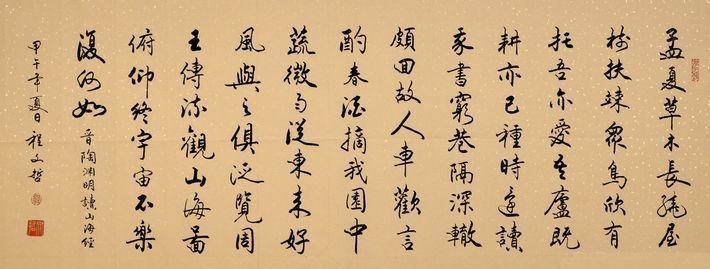 孟夏草木長繞屋
樹扶疎眾鳥欣有
托吾亦愛吾廬既
耕亦已種時還讀
我書窮巷隔深轍
頗回故人車歡言
酌春酒摘我園中
蔬微雨從東來好
風與之俱泛覽周
王傳流觀山海圖
俯仰終宇宙不樂
復何如
晉陶渊明讀山海經
甲午年夏日程文哲